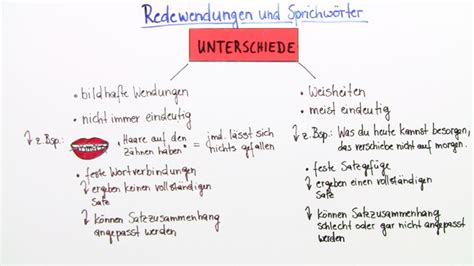 Redewendungen und Sprichwörter
UNTERSCHIEDE
• bildhafte Wendungen
• nicht immer eindeutig
↳ z. Bsp.: • Haare auf den Zähnen haben • = jmd. lässt sich nichts gefallen
• feste Wortverbindungen
↳ ergeben keinen vollständigen Satz
↳ können Satzzusammenhang angepasst werden
• Weisheiten
• meist eindeutig
↳ z. Bsp.: Was du heute kannst besorgen, das verschiebe nicht auf morgen.
• feste Satzgefüge
↳ ergeben einen vollständigen Satz
↳ können Satzzusammenhang schlecht oder gar nicht angepasst werden